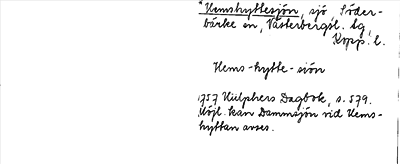 *Hemshyttesjön, sjö Söder-
bärke sn, Västerbergsl. tg,
Kopp. l.
Hems-hytte-siön
1757 Hülphers Dagbok, s. 579.
Möjl. kan Dammsjön vid Hems-
hyttan avses.